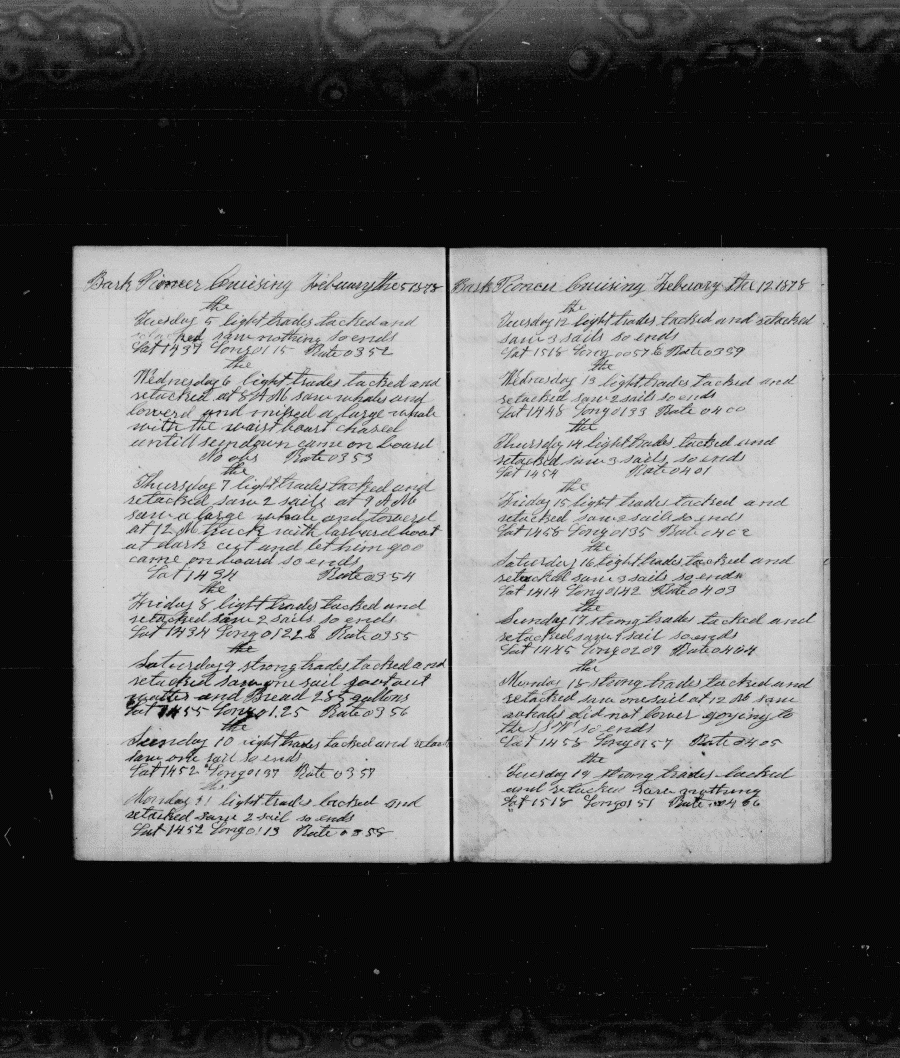 Bark Pioneer Cruising Febuary the 5 1878
the
Tuesday 5 light trades tacked and
retacked saw nothing so ends
Lat 1437 Long 0115 Rate 0352
the
Wednesday 6 light trades tacked and
retacked at 8 AM saw whales and
lowerd and missed a large whale
with the waist boart chased
untill seyndown came on board
No obs Rate 0353
the
Thursday 7 light trades tacked and
retacked saw 2 sails at 9 AM
saw a large whale and lowerd
at 12 M struck with larboard boat
at dark cut and let him goo
came on board so ends
Lat 1434 Rate 0354
the
Friday 8 light trades tacked and
retacked saw 2 sails so ends
Lat 1434 Long 0122 E Rate 0355
the
Saturday 9 strong trades tacked and
retacked saw one sail gout out
watter and Bread 285 gallons
Lat 1455 Long 0125 Rate 0356
the
Sunday 10 light trades tacked and
saw one sail so ends
Lat 1452 Long 0137 Rate 0357
the
Monday 11 light trades tacked and
retacked saw 2 sail so ends
Lat 1452 Long 0113 Rate 0358
Bark Pioneer Cruising Febuary the 12 1878
the
Tuesday 12 light trades tacked and retacked
saw 3 sails so ends
Lat 1518 Long 0057 E Rate 0359
the
Wednesday 13 light trades tacked and
retacked saw 2 sails so ends
Lat 1448 Long 0133 Rate 0400
the
Thursday 14 light trades tacked and
retacked saw 3 sails so ends
Lat 1454 Rate 0401
the
Friday 15 light trades tacked and
retacked saw 2 sails so ends
Lat 1458 Long 0135 Rate 0402
the
Saturday 16 light trades tacked and
retacked saw 3 sails so ends
Lat 1414 Long 0142 Rate 0403
the
Sunday 17 strong trades tacked and
retacked saw 1 sail so ends
Lat 1445 Long 0209 Rate 0404
the
Monday 18 strong trades tacked and
retacked saw one sail at 12 M saw
whales did not lower goying to
the so ends
Lat 1458 Long 0157 Rate 0405
the
Tuesday 19 strong trades tacked
and retacked saw nothing
Lat 1518 Long 0151 Rate 0406